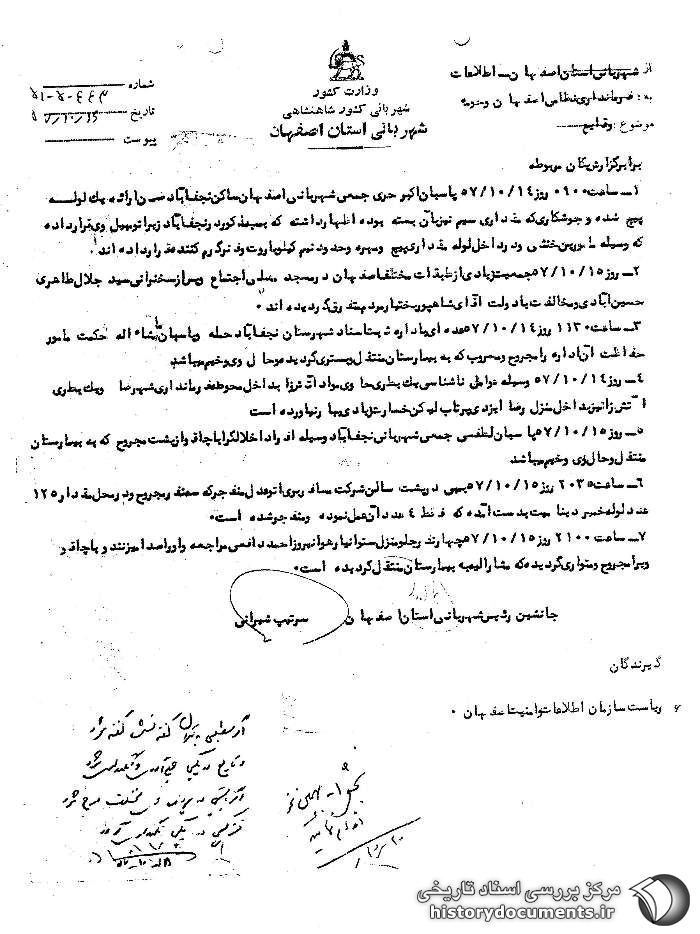 وزارت کشور
شهربانی کشور شاهنشاهی
شهربانی استان اصفهان
از شهربانی استان اصفهان - اطلاعات
به: فرمانداری نظامی اصفهان وحومه
موضوع: وقایع
شماره
تاریخ
پیوست
برابر گزارش یکان مربوطه
۱- ساعت ۰۹۰۰ روز ۵۷/۱۰/۱۴ پاسبان اکبر حری جمعی شهربانی اصفهان ساکن نجف آباد ضمن ارائه یک لوله
پیچ شده و جوشکاری که مقداری سیم نیز بآن بسته بوده اظهار داشته که بمبی در نجف آباد زیر اتومبیل وی قرار داده
که وسیله مامورین خنثی و در داخل لوله مقداری پیچ و مهره و حدود نیم کیلو باروت و نارگرم کننده قرار داده اند.
۲- روز ۵۷/۱۰/۱۵ جمعیت زیادی از طبقات مختلف اصفهان در مسجد مصلی اجتماع و پس از سخنرانی سید جلال طاهری
حسین آبادی و مخالفت با دولت آقای شاهپور بختیار مردم متفرق گردیده اند.
۳- ساعت ۱۱۳۰ روز ۵۷/۱۰/۱۴ عده ای باداره ثبت اسناد شهرستان نجف آباد حمله و پاسبان ماشاءاله حکمت مامور
حفاظت آن اداره را مجروح و مضروب که به بیمارستان منتقل و بستری گردیده و حال وی وخیم میباشد
۴- روز ۵۷/۱۰/۱۴ وسیله عوامل ناشناس یک بطری حاوی مواد آتش زا بداخل محوطه فرمانداری شهرضا و یک بطری
آتش زا نیز بداخل منزل رضا ایزدی پرتاب لیکن خسارت زیادی ببار نیاورده است
۵- روز ۵۷/۱۰/۱۵ پاسبان لطفی جمعی شهربانی نجف آباد وسیله افراد اخلالگر با چاقو از پشت مجروح که به بیمارستان
منتقل و حال وی وخیم میباشد
۶- ساعت ۲۰۳۵ روز ۵۷/۱۰/۱۵ بمبی در پشت سالن شرکت مسافربری اتوعدل منفجر که سه نفر مجروح و در محل مقدار ۱۲۵
عدد لوله خمیر دینامیت بدست آمده که فقط ۴ عدد آن عمل نموده و منفجر شده است.
۷- ساعت ۲۱۰۰ روز ۵۷/۱۰/۱۵ چهار نفر جلو منزل ستوانیار هوانیروز احمد دافعی مراجعه و او را صدا میزنند و با چاقو
ویرا مجروح و متواری گردیده که مشارالیه به بیمارستان منتقل گردیده است.
جانشین رئیس شهربانی استان اصفهان سرتیپ شیرانی
گیرندگان
ریاست سازمان اطلاعات و امنیت اصفهان.
مرکز بررسی اسناد تاریخی
historydocuments.ir